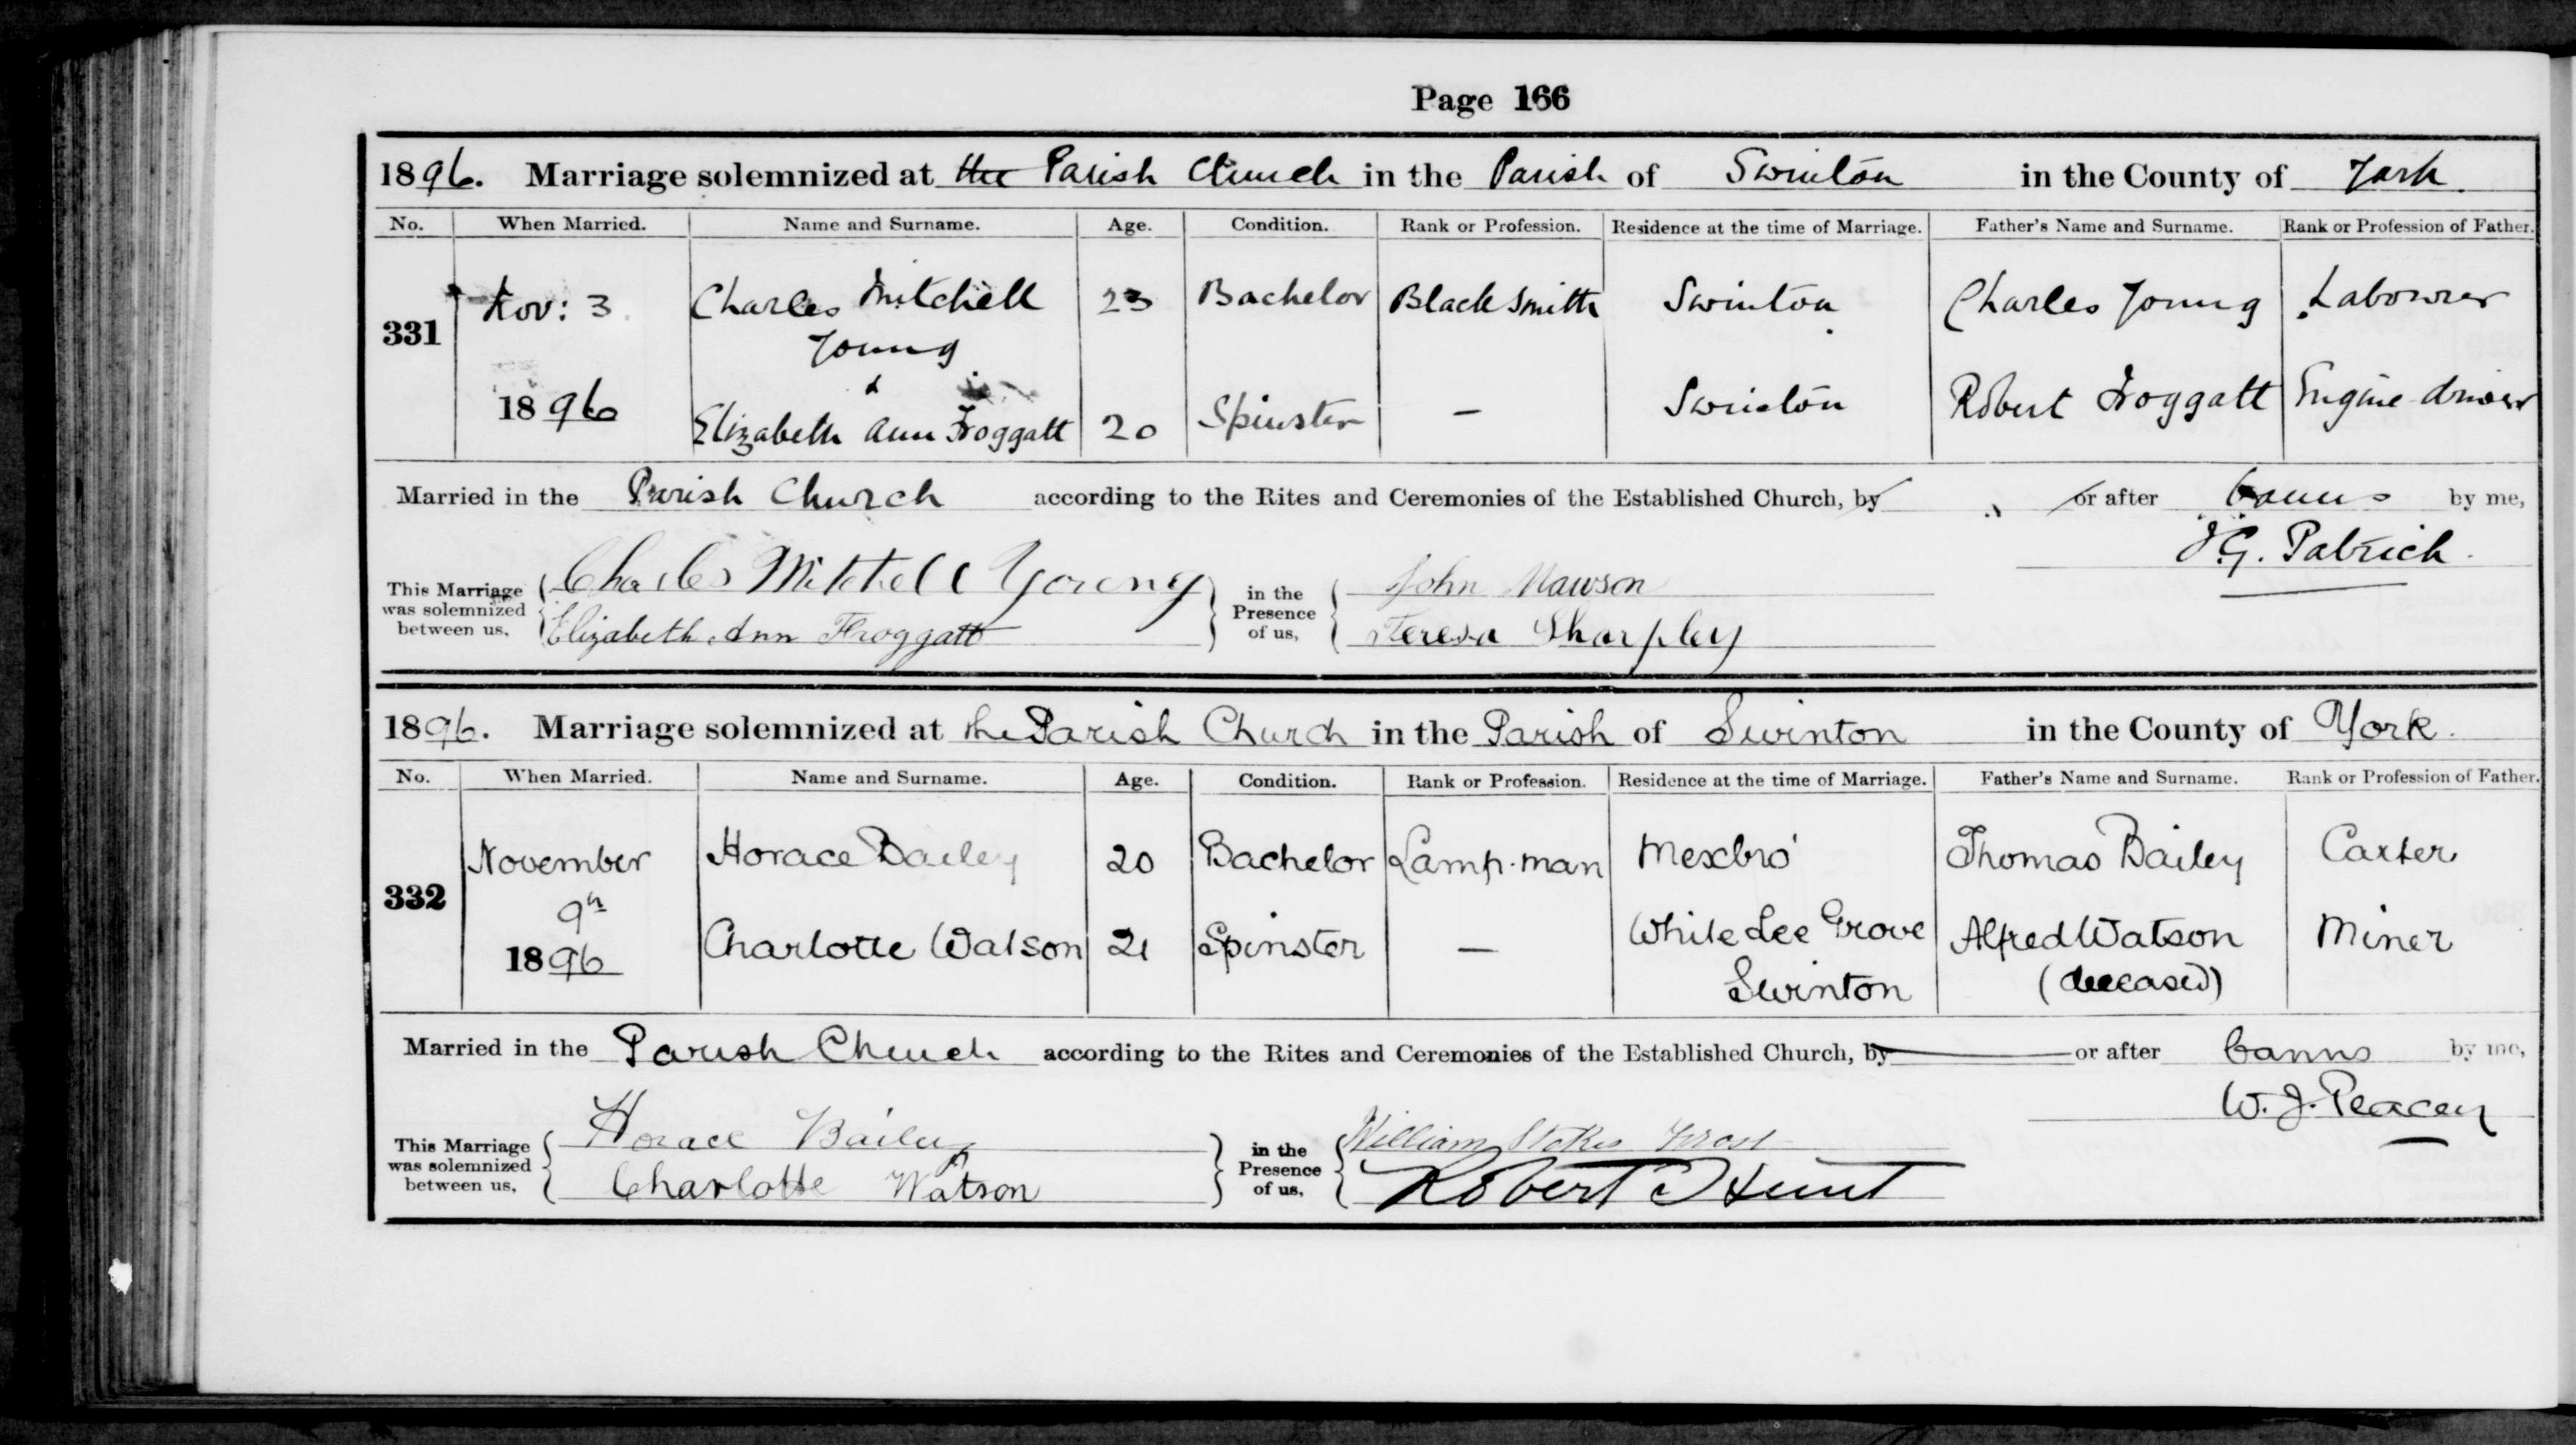 Page 166
1896. Marriage solemnized at the Parish Church in the Parish of Swinton in the County of York.
No. When Married. Name and Surname. Age. Condition. Rank or Profession. Residence at the time of Marriage. Father's Name and Surname. Rank or Profession of Father.
331 Nov: 3 Charles Mitchell 23 Bachelor Blacksmith Swinton Charles Young Labourer
Young
&
1896 Elizabeth Ann Froggatt 20 Spinster — Swinton Robert Froggatt Engine driver
Married in the Parish Church according to the Rites and Ceremonies of the Established Church, by or after banns by me,
J.G. Patrick.
This Marriage was solemnized between us, Charles Mitchell Young in the Presence of us, John Mawson
Elizabeth Ann Froggatt Teresa Sharpley
1896. Marriage solemnized at the Parish Church in the Parish of Swinton in the County of York.
No. When Married. Name and Surname. Age. Condition. Rank or Profession. Residence at the time of Marriage. Father's Name and Surname. Rank or Profession of Father.
332 November Horace Bailey 20 Bachelor Lamp-man Mexbro' Thomas Bailey Carter
9th
1896 Charlotte Watson 21 Spinster — White Lee Grove Alfred Watson Miner
Swinton (deceased)
Married in the Parish Church according to the Rites and Ceremonies of the Established Church, by or after banns by me,
W. J. Peacey
This Marriage was solemnized between us, Horace Bailey in the Presence of us, William Stokes Frost
Charlotte Watson Robert Hunt